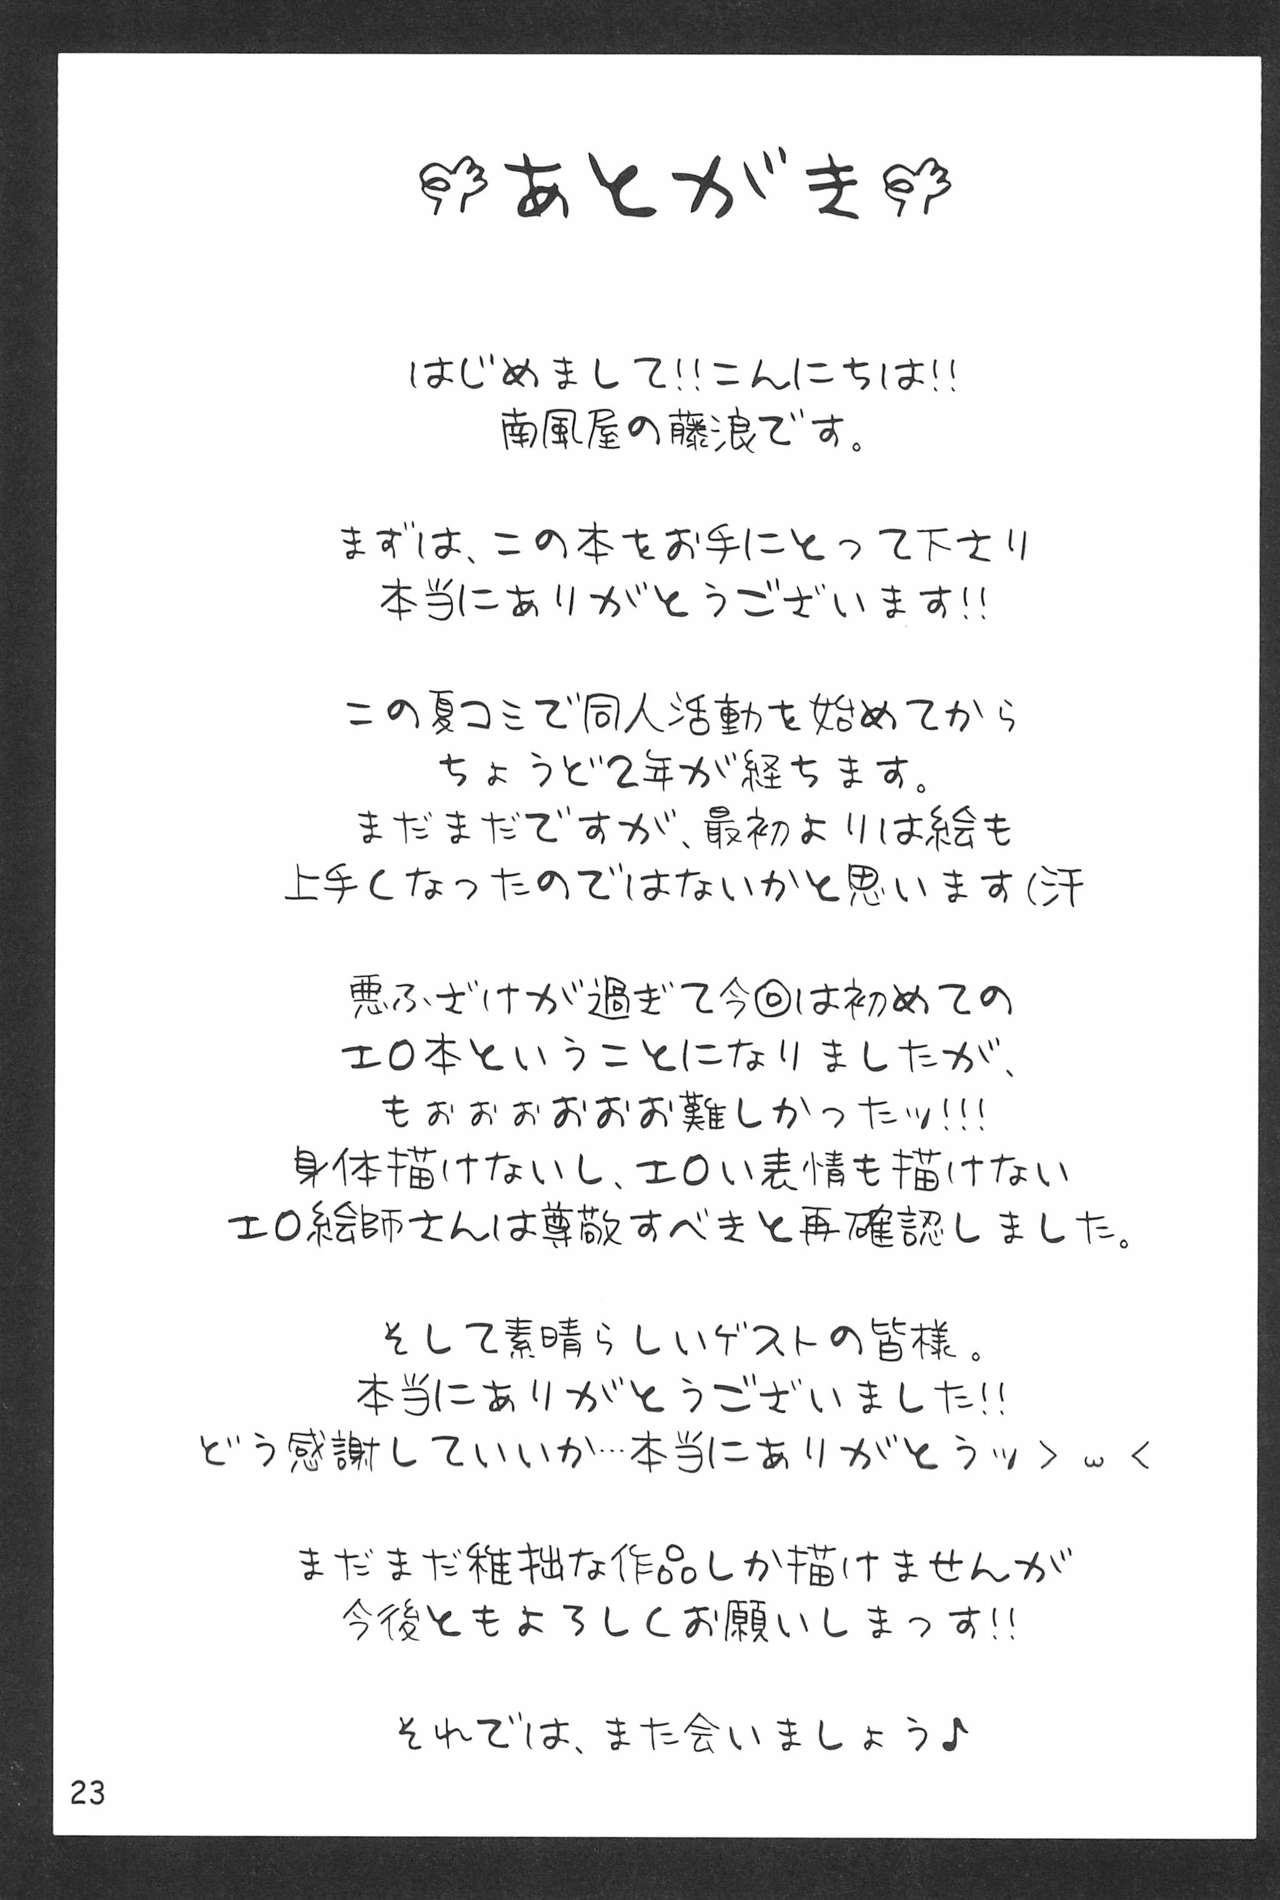 あとがき
はじめまして!!こんにちは!!
南風屋の藤浪です。
まずは、この本をお手にとって下さり
本当にありがとうございます!!
この夏コミで同人活動を始めてから
ちょうど2年が経ちます。
まだまだですが、最初よりは絵も
上手くなったのではないかと思います(汗
悪ふざけが過ぎて今回は初めての
エロ本ということになりましたが、
もぉぉぉおおお難しかったッ!!!
身体描けないし、エロい表情も描けない
エロ絵師さんは尊敬すべきと再確認しました。
そして素晴らしいゲストの皆様。
本当にありがとうございました!!
どう感謝していいか…本当にありがとうッ>ω<
まだまだ稚拙な作品しか描けませんが
今後ともよろしくお願いしまっす!!
それでは、また会いましょう♪
23